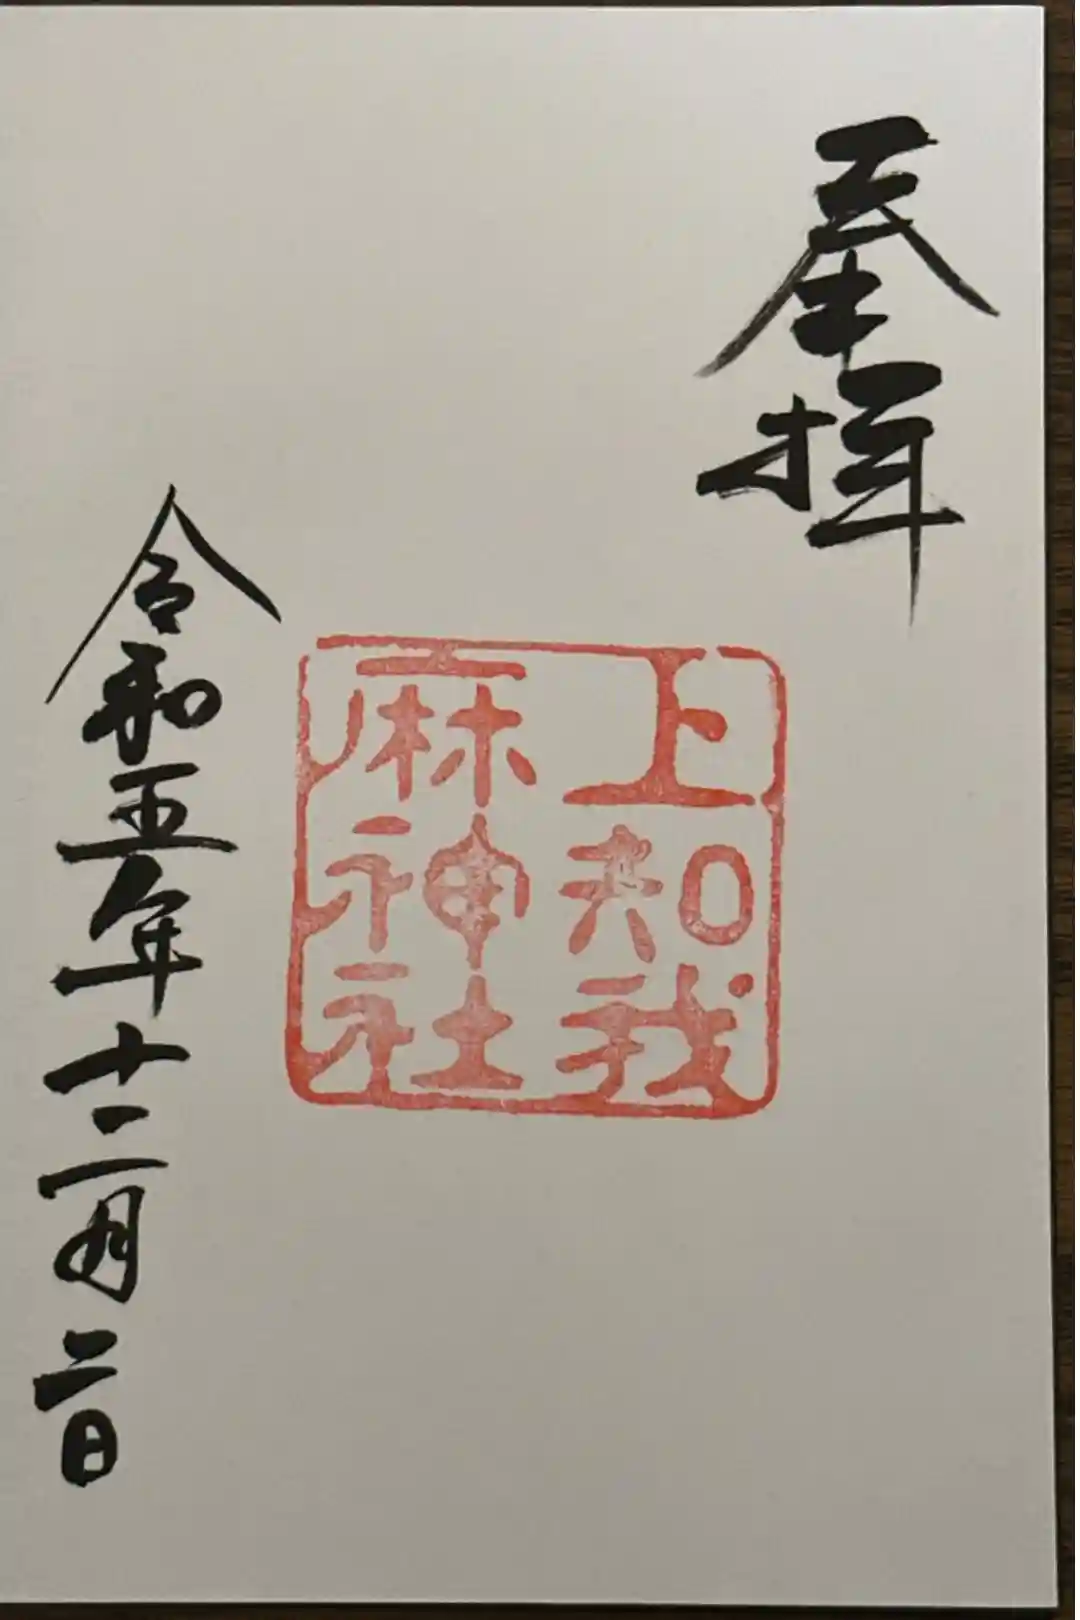 奉拝
上知我
麻神社
令和五年十二月二日